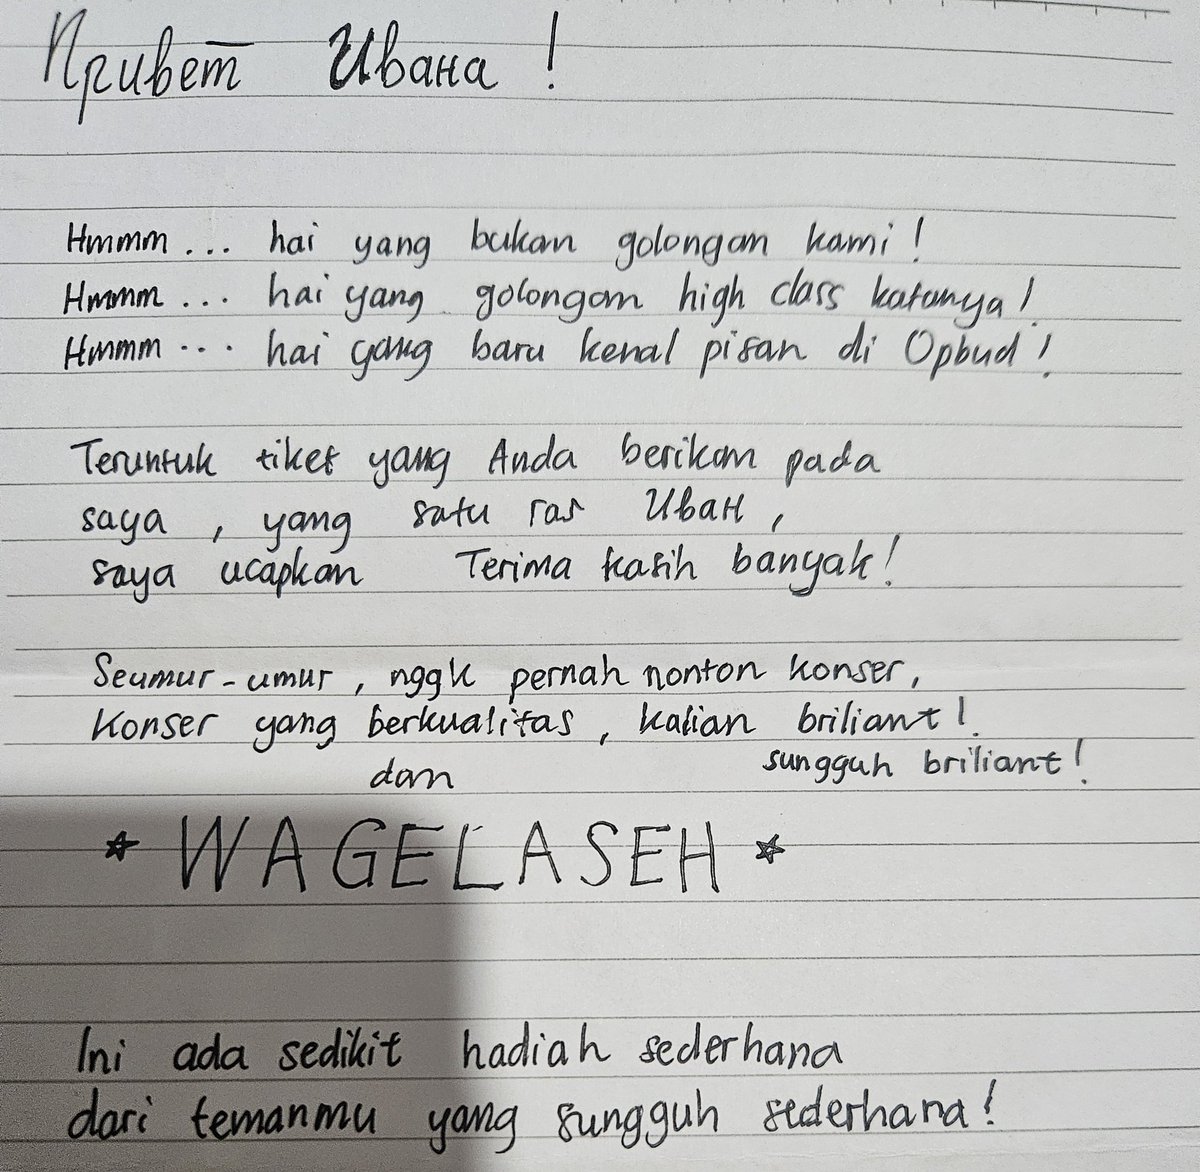 Привет Ивана !
Hmmm ... hai yang bukan golongan kami !
Hmmm ... hai yang golongan high class katanya !
Hmmm ... hai yang baru kenal pisan di Opbud !
Teruntuk tiket yang Anda berikan pada
saya , yang satu ras Иван ,
saya ucapkan Terima kasih banyak !
Seumur-umur , nggk pernah nonton konser ,
Konser yang berkualitas , kalian briliant !
dan sungguh briliant !
* WAGELASEH *
Ini ada sedikit hadiah sederhana
dari temanmu yang sungguh sederhana !